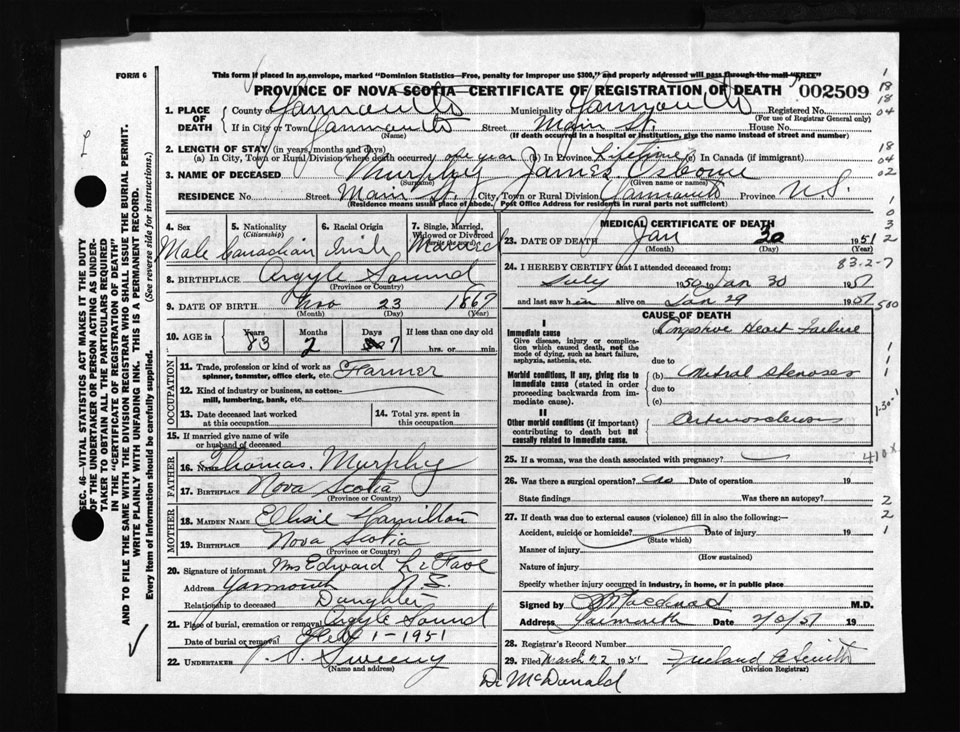 FORM 6
This form if placed in an envelope, marked "Dominion Statistics—Free, penalty for improper use $300," and properly addressed will pass through the mail "FREE"
PROVINCE OF NOVA SCOTIA—CERTIFICATE OF REGISTRATION OF DEATH 002509
1. PLACE OF DEATH { County of Yarmouth Municipality of Yarmouth Registered No.
(For use of Registrar General only)
If in City or Town Yarmouth Street Main St. House No.
(Name) (If death occurred in a hospital or institution, give the name instead of street and number)
2. LENGTH OF STAY (in years, months and days)
(a) In City, Town or Rural Division where death occurred one year (b) In Province Lifetime (c) In Canada (if immigrant)
3. NAME OF DECEASED Murphy James Osborne
(Surname) (Given name or names)
RESIDENCE No. Street Main St. City, Town or Rural Division Yarmouth Province N.S.
(Residence means usual place of abode. Post Office Address for residents in rural parts not sufficient)
4. Sex Male
5. Nationality (Citizenship) Canadian
6. Racial Origin Irish
7. Single, Married, Widowed or Divorced (Write the word) Married
8. BIRTHPLACE Argyle Sound
(Province or Country)
9. DATE OF BIRTH Nov 23 1867
(Month) (Day) (Year)
10. AGE in { Years 83 Months 2 Days 7 If less than one day old
hrs. or min.
OCCUPATION
11. Trade, profession or kind of work as spinner, teamster, office clerk, etc. Farmer
12. Kind of industry or business, as cotton-mill, lumbering, bank, etc.
13. Date deceased last worked at this occupation
14. Total yrs. spent in this occupation
15. If married give name of wife or husband of deceased
FATHER
16. Name Thomas Murphy
17. Birthplace Nova Scotia
(Province or Country)
MOTHER
18. Maiden Name Ellisie Hamilton
19. Birthplace Nova Scotia
(Province or Country)
20. Signature of informant Mrs Edward
Address Yarmouth N.S.
Relationship to deceased Daughter
21. Place of burial, cremation or removal Argyle Sound
Date of burial or removal 1-1951
22. UNDERTAKER Sweeny
(Name and address)
MEDICAL CERTIFICATE OF DEATH
23. DATE OF DEATH Jan 30 1951
(Month) (Day) (Year)
24. I HEREBY CERTIFY that I attended deceased from:
July 1950 to Jan 30 1951
and last saw him alive on Jan 29 1951
CAUSE OF DEATH
I
Immediate cause Congestive Heart Failure
Give disease, injury or complication which caused death, not the mode of dying, such as heart failure, asphyxia, asthenia, etc.
due to
Morbid conditions, if any, giving rise to immediate cause (stated in order proceeding backwards from immediate cause). (b) Mitral Stenosis
due to
(c)
II
Other morbid conditions (if important) contributing to death but not causally related to immediate cause. Arteriosclerosis
25. If a woman, was the death associated with pregnancy?
26. Was there a surgical operation? no Date of operation 19
State findings Was there an autopsy?
27. If death was due to external causes (violence) fill in also the following:—
Accident, suicide or homicide? Date of injury 19
(State which)
Manner of injury
(How sustained)
Nature of injury
Specify whether injury occurred in industry, in home, or in public place
Signed by M.D.
Address Yarmouth Date 19
28. Registrar's Record Number
29. Filed March 22 1951
(Division Registrar)
Dr McDonald
SEC. 46—VITAL STATISTICS ACT MAKES IT THE DUTY
OF THE UNDERTAKER OR PERSON ACTING AS UNDER-
TAKER TO OBTAIN ALL THE PARTICULARS REQUIRED
IN THE "CERTIFICATE OF REGISTRATION OF DEATH"
AND TO FILE THE SAME WITH THE DIVISION REGISTRAR WHO SHALL ISSUE THE BURIAL PERMIT.
WRITE PLAINLY WITH UNFADING INK. THIS IS A PERMANENT RECORD.
Every item of information should be carefully supplied. (See reverse side for instructions.)
1
18
18
04
18
04
02
1
0
3
2
83-2-7
500
1
1
1
410x
2
2
1